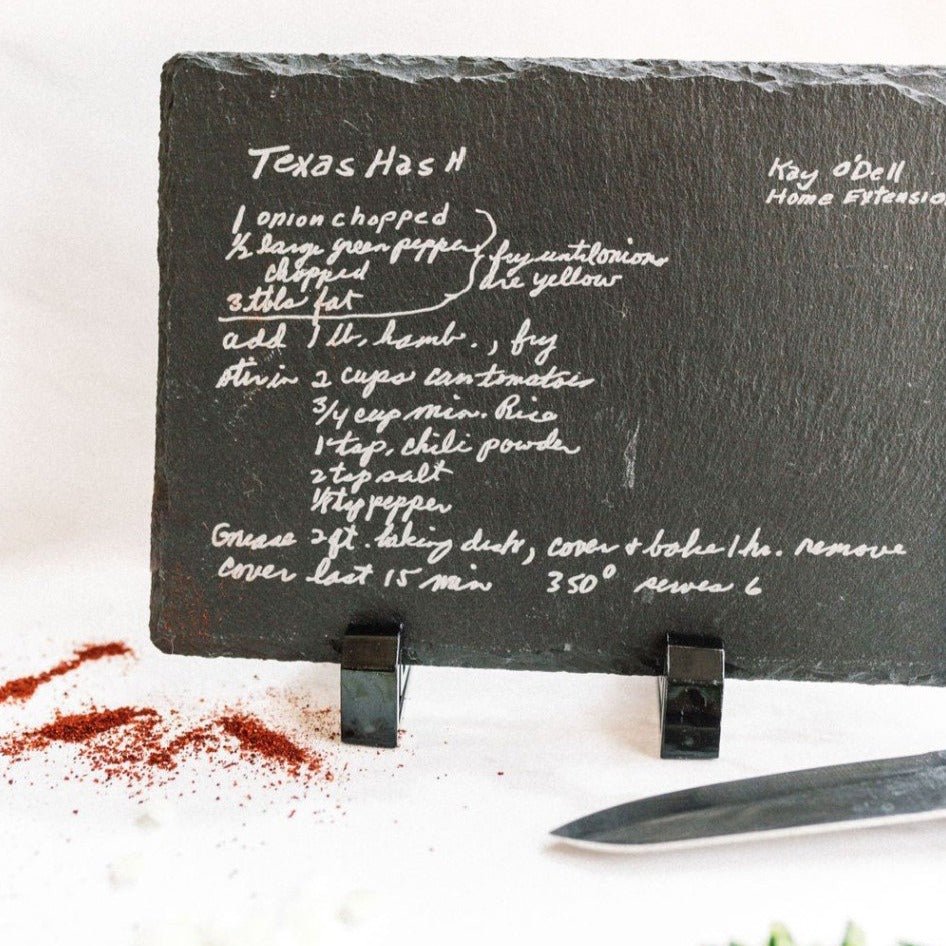 Texas Hash
Kay O'Dell
Home Extensio
1 onion chopped
½ large green pepper
chopped
3 tbls fat
fry until onions
are yellow
add 1 lb. hamb., fry
stir in 2 cups can tomatoes
3/4 cup min. Rice
1 tsp. chili powder
2 tsp salt
tsp pepper
Grease 2 qt. baking dish, cover + bake 1 hr. remove
cover last 15 min 350° serves 6